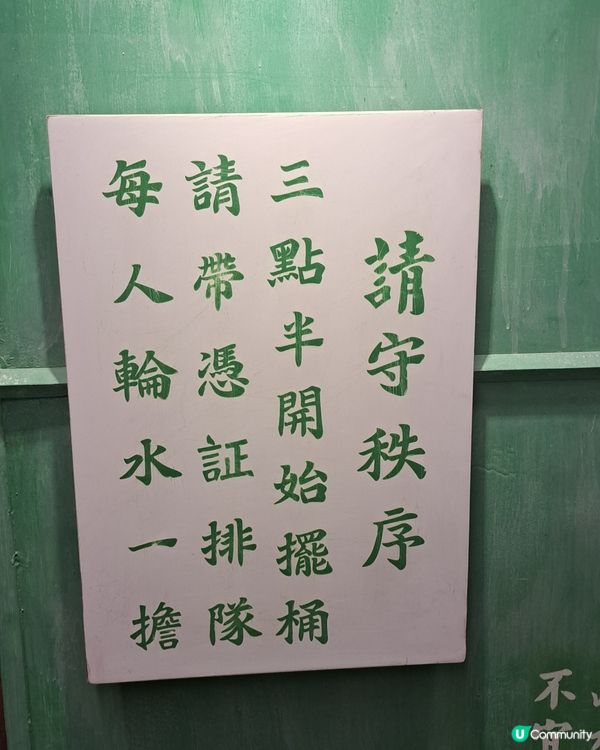 請守秩序
三點半開始擺桶
請帶憑証排隊
每人輪水一擔
不
U Community